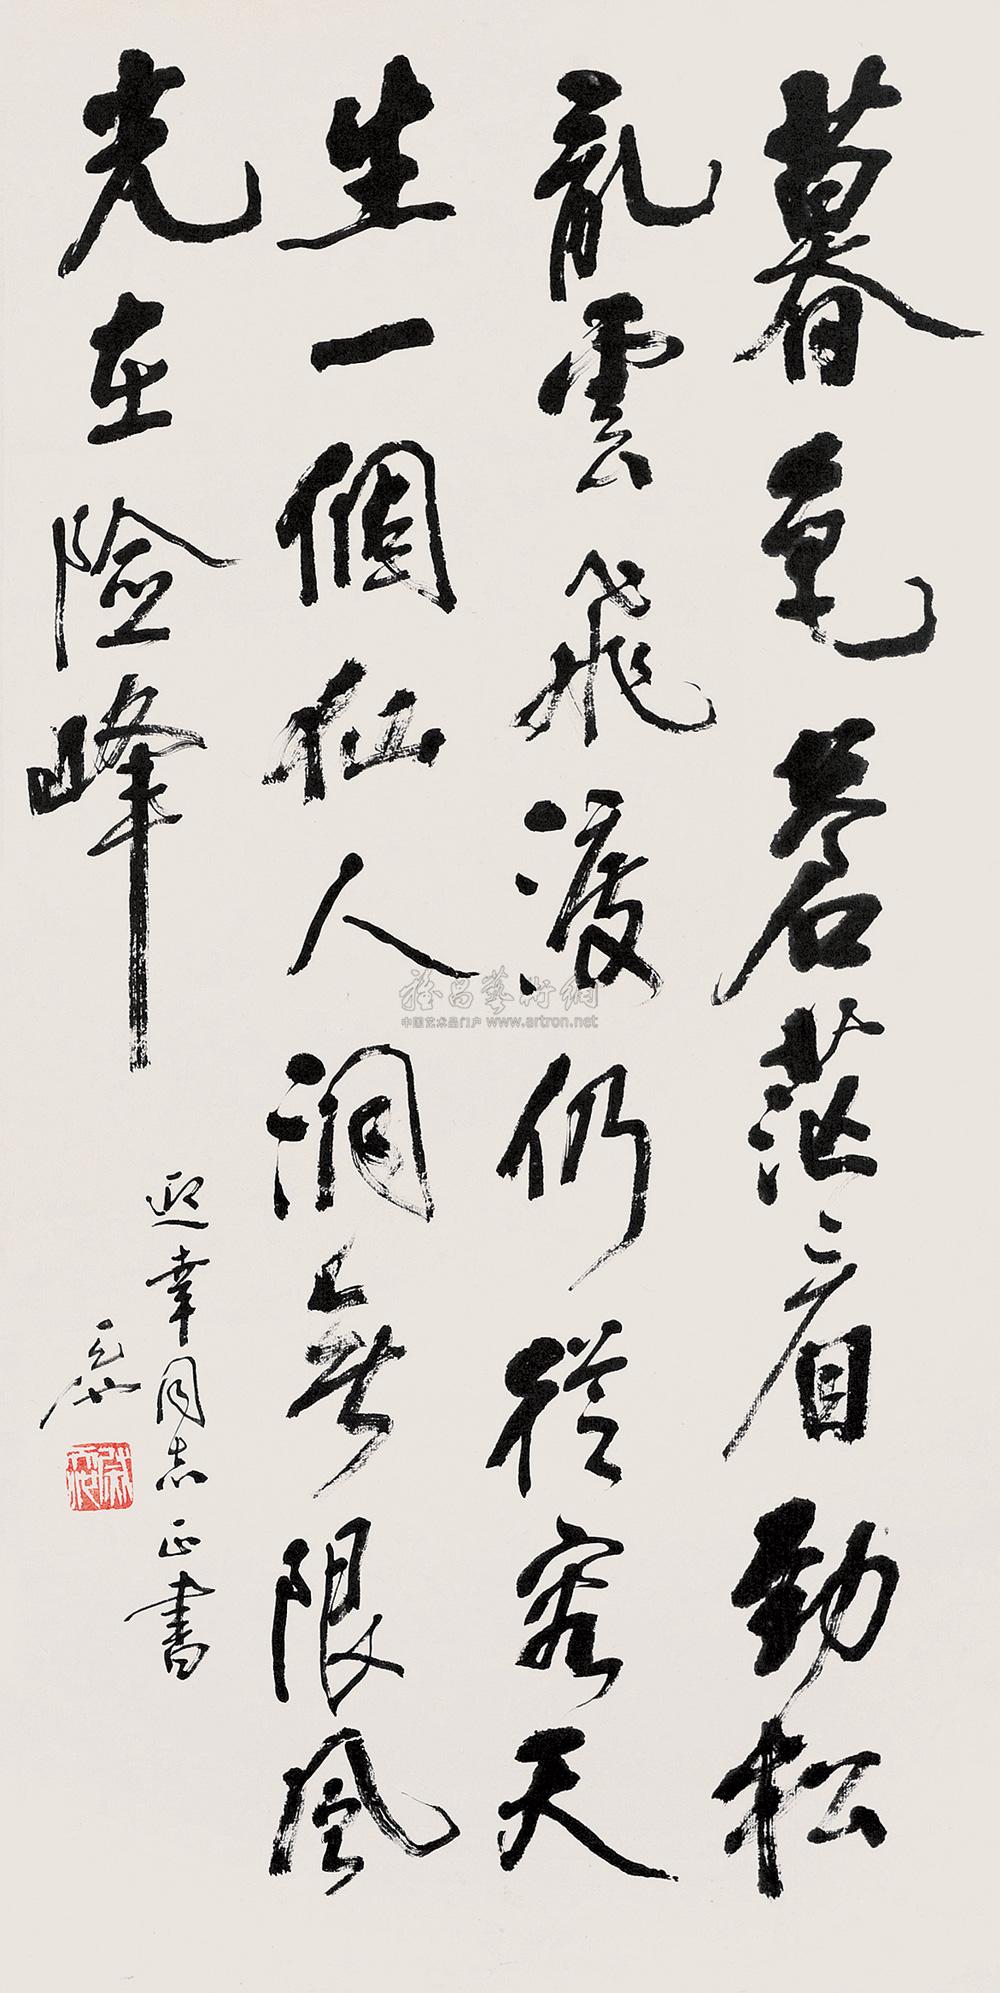 暮色蒼茫看勁松
亂雲飛渡仍從容天
生一個仙人洞無限風
光在險峰
迎幸同志正書
雅昌藝術網
中国艺术品门户 www.artron.net